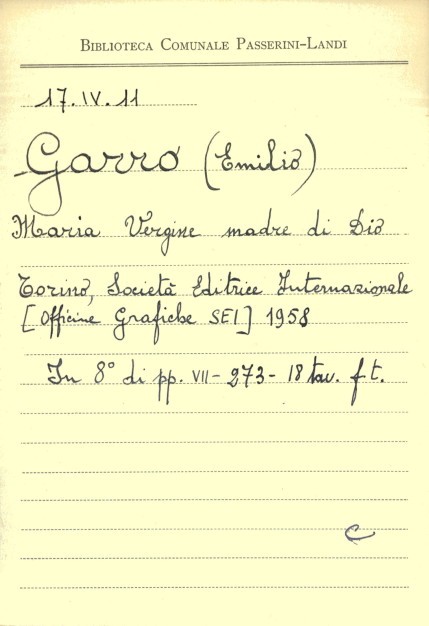 BIBLIOTECA COMUNALE PASSERINI-LANDI
17.IV.11
Garro (Emilio)
Maria Vergine madre di Dio
Torino, Società Editrice Internazionale
[Officine Grafiche SEI] 1958
In 8° di pp. VII-273-18 tav. f.t.
C